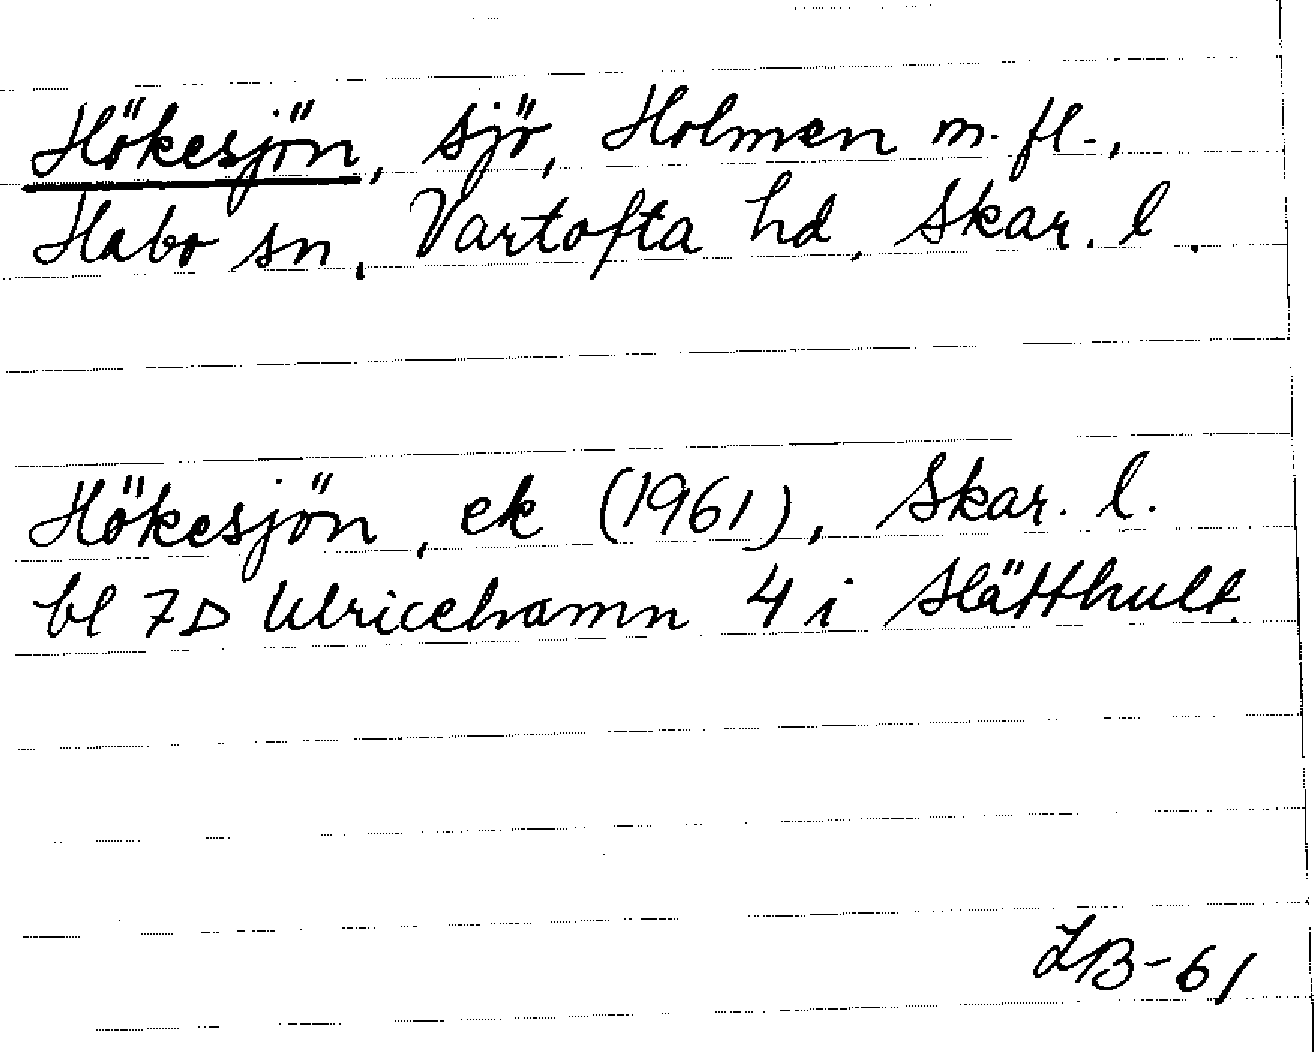 Hökesjön, sjö, Holmen m. fl.,
Habo sn, Vartofta hd, Skar. l.
Hökesjön, ek (1961), Skar. l.
bl 7D Ulricehamn 4 i Slätthult.
LB-61